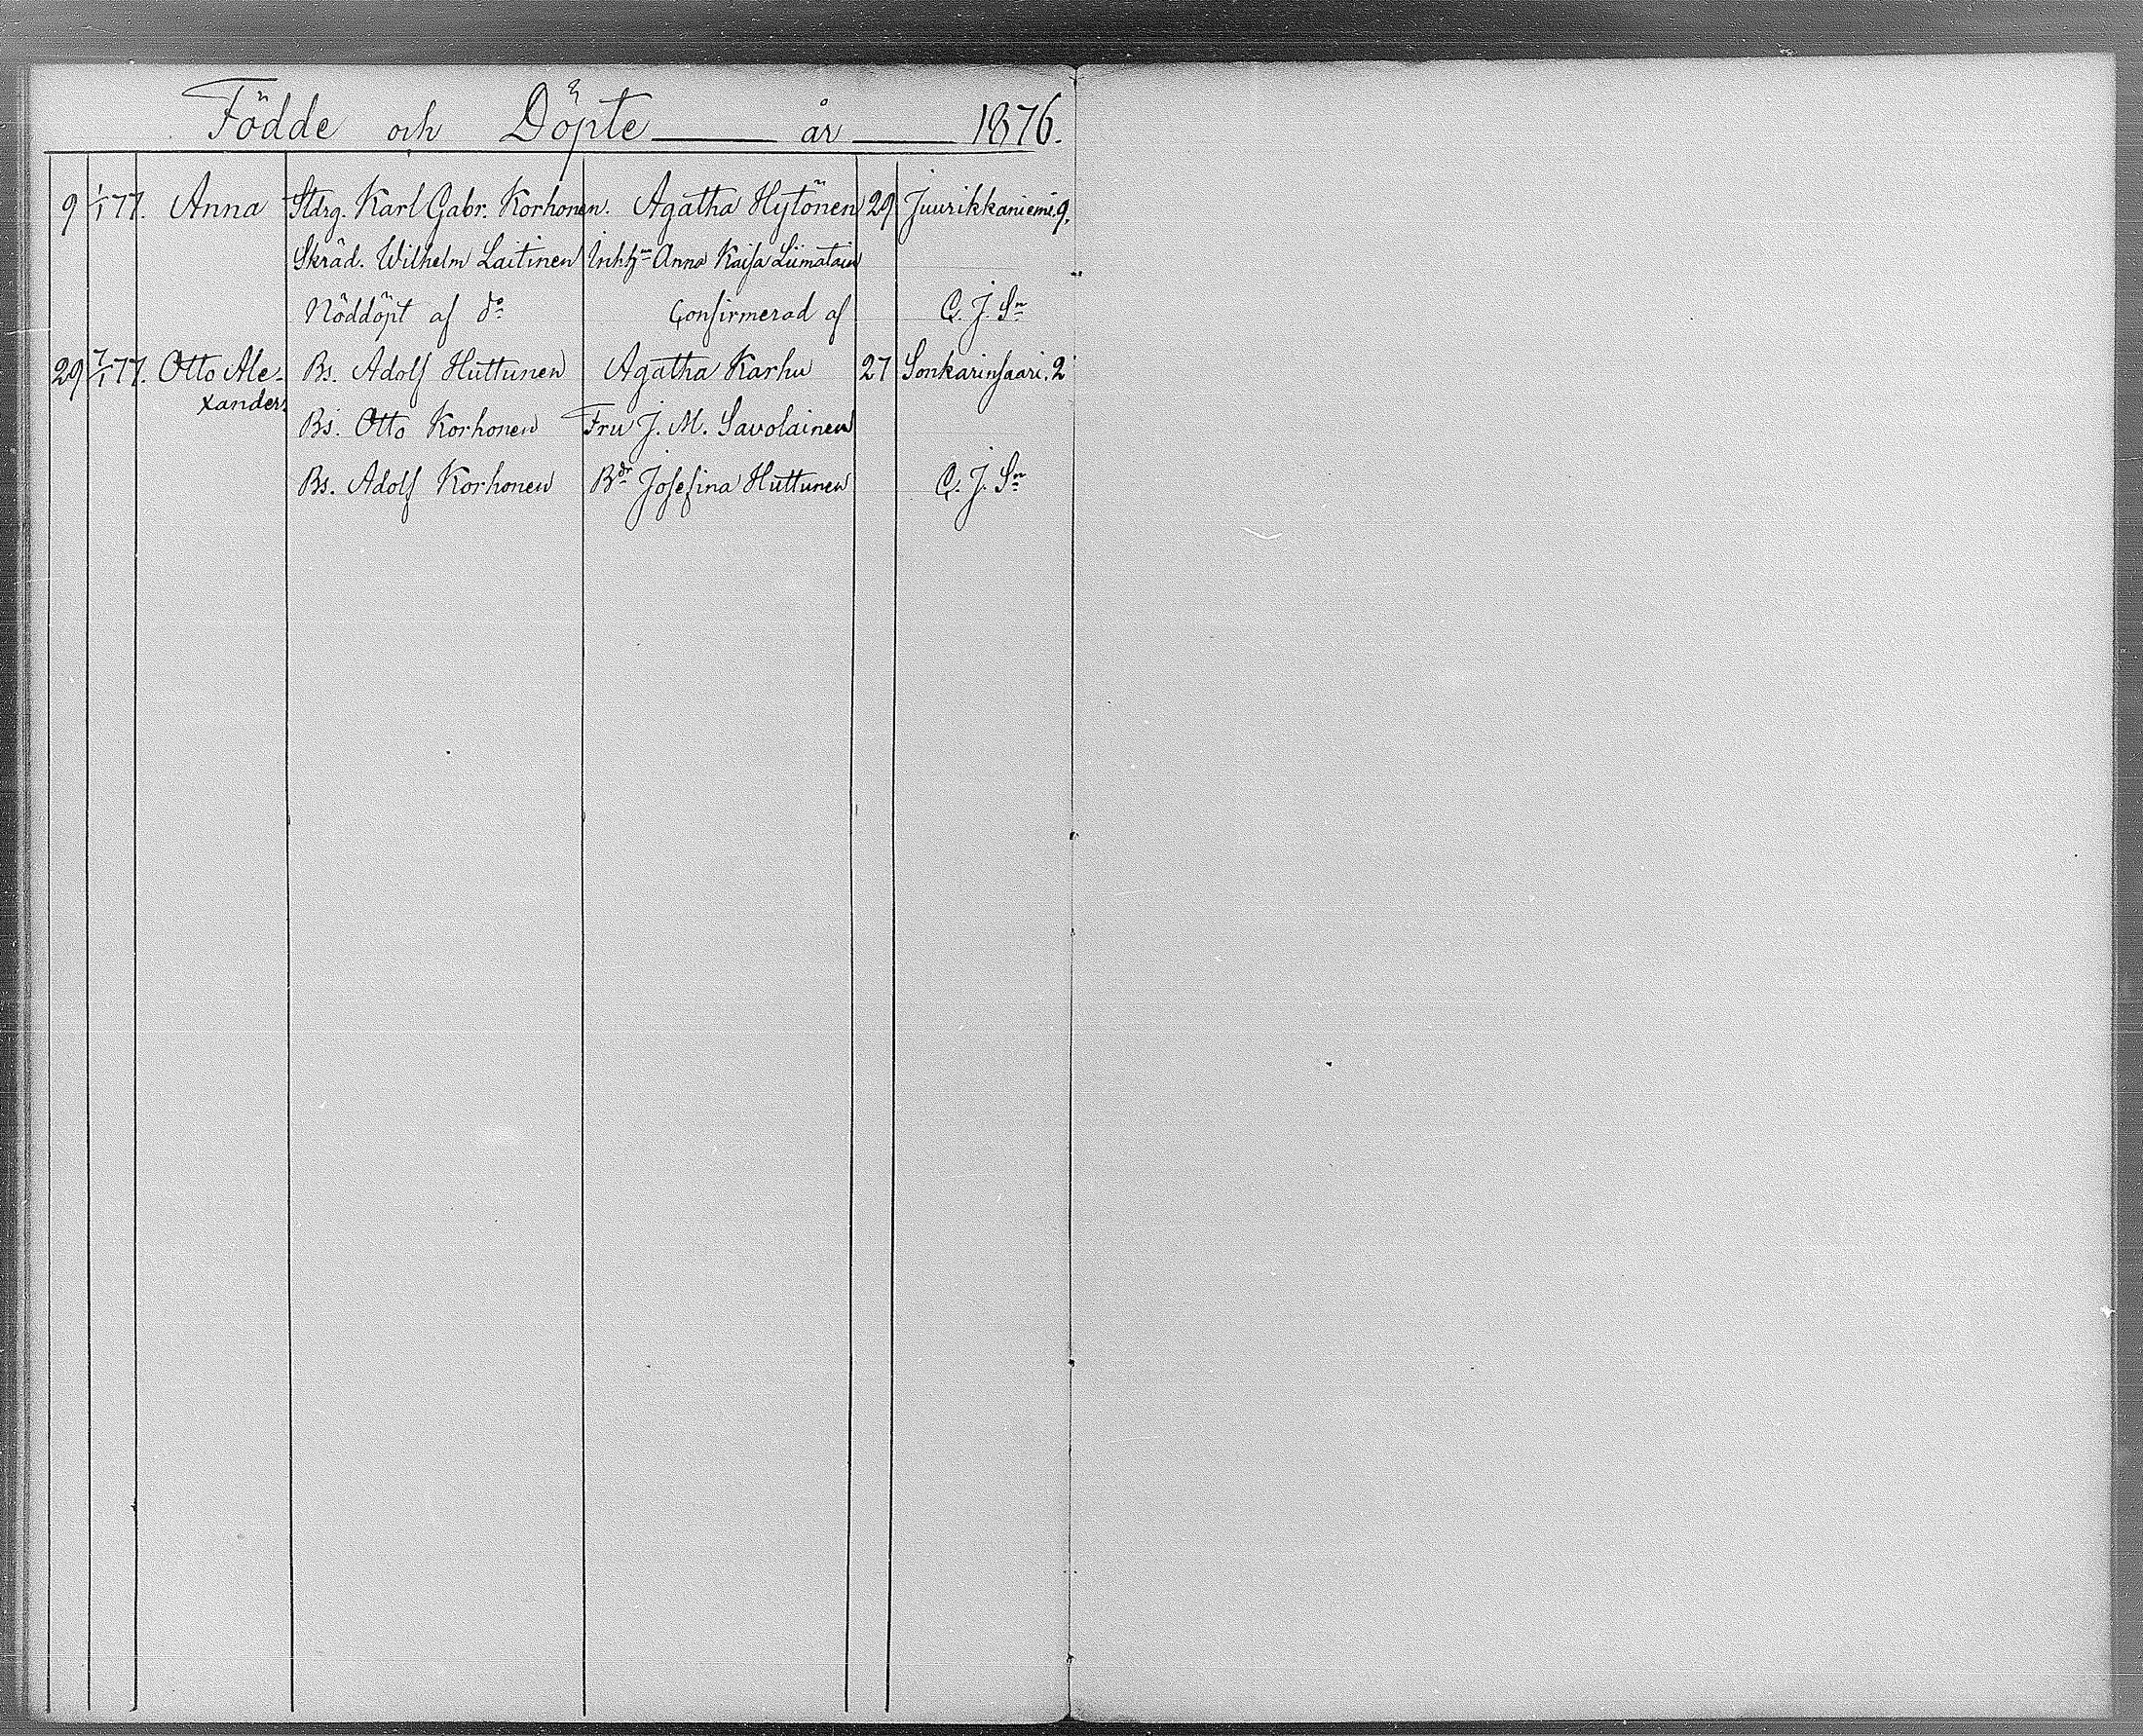 Födde och Döpte år 1876.
9 1/1 77. Anna Stdrg. Karl Gabr. Korhonen. Agatha Hytönen 29 Juurikkaniemi. 9.
Skräd. Wilhelm Laitinen Anna Kaisa Liimatain
Nöddöpt af do Confirmerad af C. J. Sn
29 7/1 77. Otto Ale- Bs. Adolf Huttunen Agatha Karhu 27 Sonkarinsaari. 2
xander.
Bs. Otto Korhonen Fru J. M. Savolainen
Bs. Adolf Korhonen Bdr Josefina Huttunen C. J. Sn